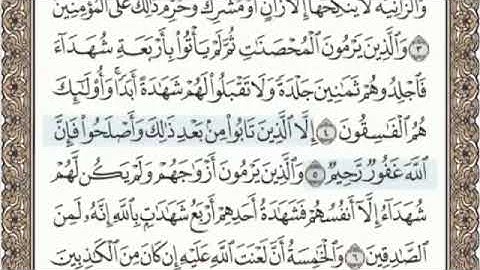 وَٱلزَّانِيَةُ لَا يَنكِحُهَآ إِلَّا زَانٍ أَوْ مُشْرِكٌ وَحُرِّمَ ذَٰلِكَ عَلَى ٱلْمُؤْمِنِينَ
٣ وَٱلَّذِينَ يَرْمُونَ ٱلْمُحْصَنَٰتِ ثُمَّ لَمْ يَأْتُوا۟ بِأَرْبَعَةِ شُهَدَآءَ
فَٱجْلِدُوهُمْ ثَمَٰنِينَ جَلْدَةً وَلَا تَقْبَلُوا۟ لَهُمْ شَهَٰدَةً أَبَدًا ۚ وَأُو۟لَٰٓئِكَ
هُمُ ٱلْفَٰسِقُونَ ٤ إِلَّا ٱلَّذِينَ تَابُوا۟ مِنۢ بَعْدِ ذَٰلِكَ وَأَصْلَحُوا۟ فَإِنَّ
ٱللَّهَ غَفُورٌ رَّحِيمٌ ٥ وَٱلَّذِينَ يَرْمُونَ أَزْوَٰجَهُمْ وَلَمْ يَكُن لَّهُمْ
شُهَدَآءُ إِلَّآ أَنفُسُهُمْ فَشَهَٰدَةُ أَحَدِهِمْ أَرْبَعُ شَهَٰدَٰتٍۭ بِٱللَّهِ ۙ إِنَّهُۥ لَمِنَ
ٱلصَّٰدِقِينَ ٦ وَٱلْخَٰمِسَةُ أَنَّ لَعْنَتَ ٱللَّهِ عَلَيْهِ إِن كَانَ مِنَ ٱلْكَٰذِبِينَ